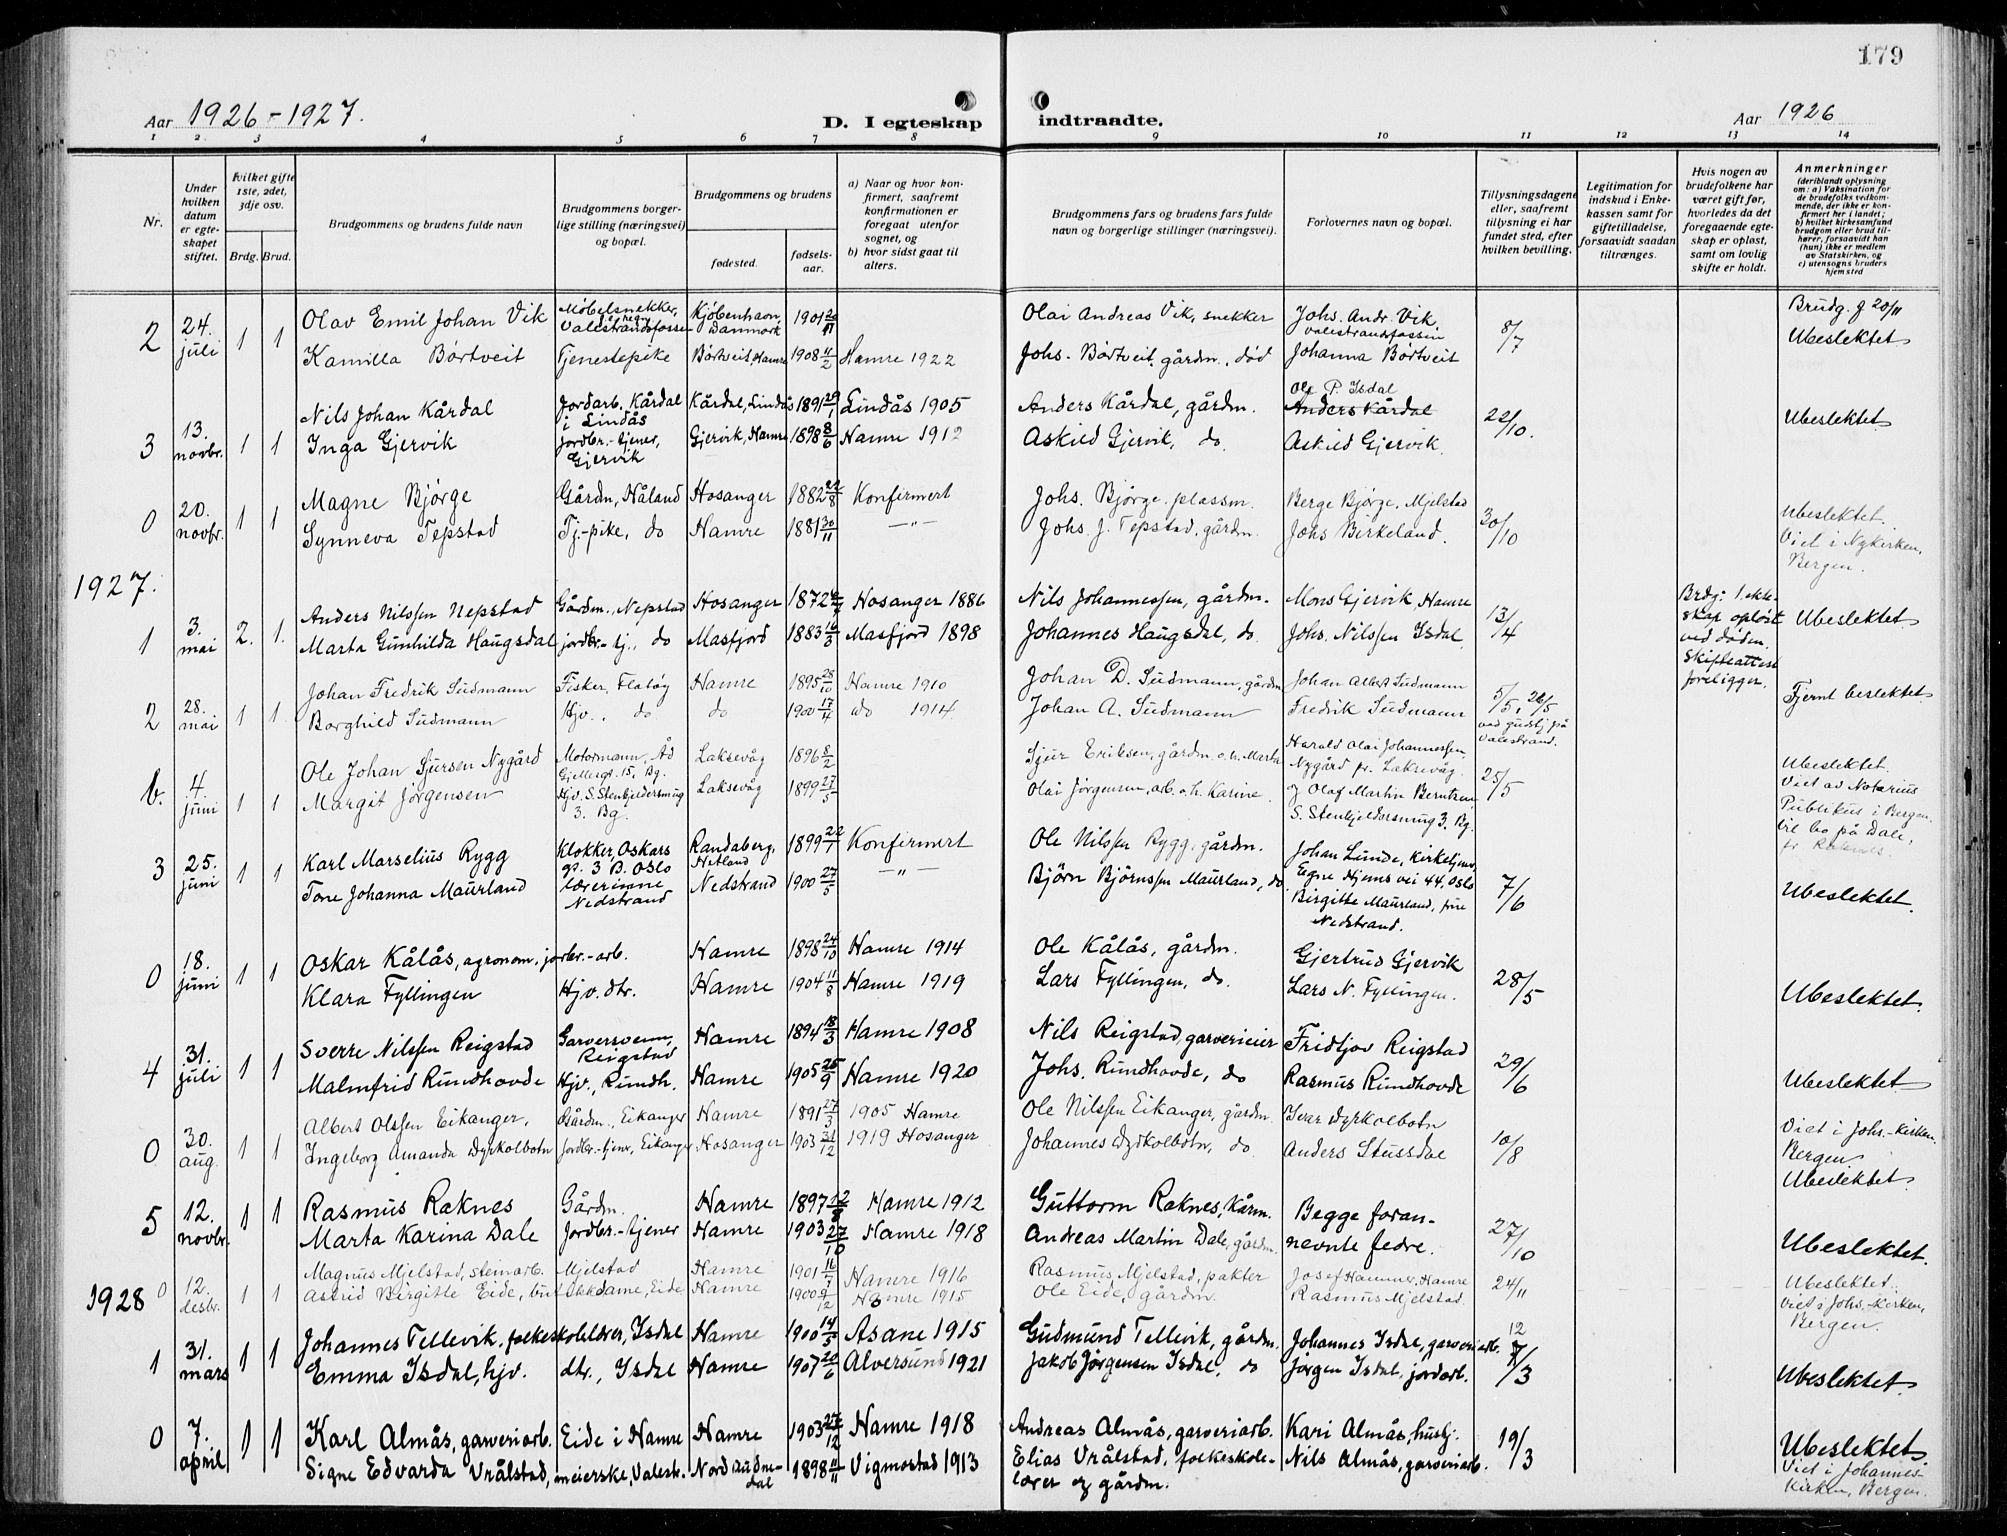 179
Aar 1926-1927.
D. I egteskap indtraadte.
Aar 1926
1 2. 3 4 5 6 7 8 9 10 11 12 13 14
Nr.
Under hvilken datum er egteskapet stiftet.
Hvilket gifte 1ste, 2det, 3dje osv.
Brdg. Brud.
Brudgommens og brudens fulde navn
Brudgommens borgerlige stilling (næringsvei) og bopæl.
Brudgommens og brudens
fødested.
fødselsaar.
a) Naar og hvor konfirmert, saafremt konfirmationen er foregaat utenfor sognet, og
b) hvor sidst gaat til alters.
Brudgommens fars og brudens fars fulde navn og borgerlige stillinger (næringsvei).
Forlovernes navn og bopæl.
Tillysningsdagene eller, saafremt tillysning ei har fundet sted, efter hvilken bevilling.
Legitimation for indskud i Enkekassen samt for giftetilladelse, forsaavidt saadan tiltrænges.
Hvis nogen av brudefolkene har været gift før, hvorledes da det foregaaende egteskap er opløst, samt om lovlig skifte er holdt.
Anmerkninger
(deriblandt oplysning om: a) Vaksination for de brudefolks vedkommende, der ikke er konfirmert her i landet; b) hvilket kirkesamfund brudgom eller brud tilhører, forsaavidt han (hun) ikke er medlem av Statskirken, og c) utensogns bruders hjemsted
2 24. juli 1 1 Olav Emil Johan Vik Møbelsnekker, Valestrandsfossen Kjøbenhavn, Danmark 1901 20/11 Olai Andreas Vik, snekker Johs. Andr. Vik, Valestrandsfossen 8/7 Brudg. f 20/11 Ubeslektet
Kamilla Børtveit Tjenestepike Børtveit, Hamre 1908 11/2 Hamre 1922 Johs. Børtveit, gårdm., død Johanna Børtveit
3 13. novbr. 1 1 Nils Johan Kårdal Jordarb. Kårdal i Lindås Kårdal, Lindås 1891 29/1 Lindås 1905 Anders Kårdal, gårdm. Ole P. Isdal Anders Kårdal 22/10. Ubeslektet
Inga Gjervik jordbr.-tjener, Gjervik Gjervik, Hamre 1898 8/6 Hamre 1912 Askild Gjervik, do. Askild Gjervik.
0 20. novbr. 1 1 Magne Bjørge Gårdm, Håland Hosanger 1882 22/8 Konfirmert Johs. Bjørge. plassm. Berge Bjørge, Mjelstad 30/10 Ubeslektet. Viet i Nykirken, Bergen.
Synneva Tepstad Tj.-pike, do Hamre 1881 30/11 —"— Johs. J. Tepstad, gårdm. Johs Birkeland.
1927.
1 3. mai 2. 1. Anders Nilssen Nepstad Gårdm., Nepstad Hosanger 1872 Hosanger 1886 Nils Johannessen, gårdm. Mons Gjervik, Hamre 13/4 Brdg: 1. ekteskap opløst ved døden. Skifteattest foreligger. Ubeslektet
Marta Gunhilda Haugsdal jordbr.-tj., do Masfjord 1883 16/3 Masfjord 1898 Johannes Haugsdal, do. Johs. Nilssen Isdal.
2 28. mai 1 1. Johan Fredrik Sudmann Fisker, Flatøy Hamre 1895 28/10 Hamre 1910 Johan D. Sudmann, gårdm Johan Albert Sudmann 5/5, 26/5 ved gudstj på Valestrand. Fjernt beslektet.
Borghild Sudmann Hjv., do do 1900 17/4 do 1914 Johan A. Sudmann Fredrik Sudmann
b. 4. juni 1 1 Ole Johan Sjursen Nygård Motormann, Laksevåg 1896 8/2 Sjur Eriksen, gårdm o. h. Marta Harald Olai Johannessen, Nygård pr. Laksevåg. 25/5 Ubeslektet. Viet av Notarius Publikus i Bergen. Vil bo på Dale, pr. Raknes
Margit Jørgensen Hjv. S. Stenkjeldersmug 3. Bg. Laksevåg 1899 27/5 Olai Jørgensen, arb. o. h. Karine. og Olaf Martin Berntsen S. Stenkjeldersmug 3. Bg.
3 25. juni 1 1 Karl Marselius Rygg Klokker, Oskars gt. 3 B. Oslo Randaberg, Hetland 1899 22/1 Konfirmert Ole Nilssen Rygg, gårdm. Johan Lunde, kirketjener, Egne Hjems vei 44, Oslo 7/6 Ubeslektet.
Tone Johanna Maurland lærerinne Nedstrand Nedstrand 1900 27/5 —"— Bjørn Bjørnssen Maurland, do Birgitte Maurland, frue Nedstrand.
0 18. juni 1 1 Oskar Kålås, agronom, jorbr.-arb. Hamre 1898 24/10 Hamre 1914 Ole Kålås, gårdm. Gjertrud Gjervik 28/5 Ubeslektet.
Klara Fyllingen Hjv. dtr. Hamre 1904 11/8 Hamre 1919 Lars Fyllingen, do. Lars N. Fyllingen.
4 31. juli 1 1 Sverre Nilssen Reigstad Garversvenn, Reigstad Hamre 1894 18/3 Hamre 1908 Nils Reigstad, garverieier Fridtjov Reigstad 29/6 Ubeslektet
Malmfrid Rundhovde Hjv., Rundh. Hamre 1905 25/9 Hamre 1920 Johs. Rundhovde, do Rasmus Rundhovde
0 30. aug. 1 1 Albert Olssen Eikanger, Gårdm., Eikanger Hamre 1891 27/3 1905 Hamre Ole Nilssen Eikanger, gårdm Ivar Dyrkolbotn 10/8 Viet i Johs.-kirken. Bergen Ubeslektet.
Ingeborg Amanda Dyrkolbotn jordbr.-tjener, Eikanger Hosanger 1903 31/12 1919 Hosanger Johannes Dyrkolbotn, do Anders Stussdal
5 12. novbr. 1 1 Rasmus Raknes Gårdm. Hamre 1897 12/8 Hamre 1912 Guttorm Raknes, kårm. Begge forannevnte fedre. 27/10 Ubeslektet.
Marta Karina Dale Jordbr.-tjener Hamre 1903 27/10 Hamre 1918 Andreas Martin Dale, gårdm.
0 12. desbr. 1 1 Magnus Mjelstad, steinarb. Mjelstad Hamre 1901 Hamre 1916 Rasmus Mjelstad, pakter Josef Hammer, Hamre 24/11 Ubeslektet. Viet i Johs.-kirken, Bergen.
Astrid Birgitte Eide, butikkdame, Eide Hamre 1900 9/12 Hamre 1915 Ole Eide, gårdm. Rasmus Mjelstad.
1928
1 31. mars 1 1 Johannes Tellevik, folkeskolelærer, Isdal Hamre 1900 14/5 Asane 1915 Gudmund Tellevik, gårdm. Johannes Isdal, garveriarb. 12/3 Ubeslektet.
Emma Isdal, hjv. dtr., Isdal Hamre 1907 20/6 Alversund 1921 Jakob Jørgensen Isdal, do Jørgen Isdal, jordarb.
0 7. april 1 1 Karl Almås, garveriarb. Eide i Hamre Hamre 1903 27/12 Hamre 1918 Andreas Almås, garveriarb. Kari Almås, hustj. 19/3 Ubeslektet. Viet i Johanneskirken, Bergen.
Signe Edvarda Vrålstad, meierske, Valestr. Nord Audnedal 1898 11/11 Vigmostad 1913 Elias Vrålstad, folkeskolelærer og gårdm. Nils Almås, garveriarb.